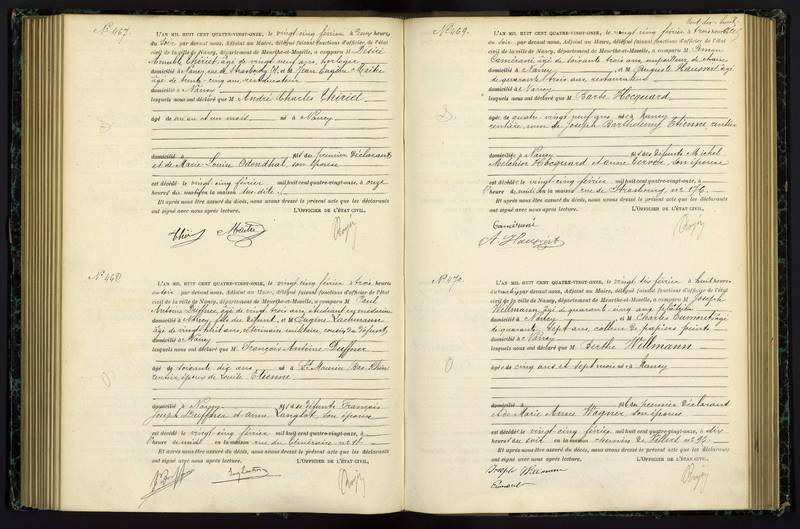 N° 467.
L'AN MIL HUIT CENT QUATRE-VINGT-ONZE, le vingt cinq février à heures
du soir par devant nous, Adjoint au Maire, délégué faisant fonctions d'officier de l'état
civil de la ville de Nancy, département de Meurthe-et-Moselle, a comparu M Désiré
Thiriet, âgé de vingt neuf ans, horloger
domicilié à Nancy, rue de Strasbourg et M Jean
âgé de trente cinq ans, restaurateur
domicilié à Nancy
lesquels nous ont déclaré que M André Charles Thiriet
âgé de un an et un mois né à Nancy
domicilié à Nancy fils du premier déclarant
et de Marie Louise Odendhal, son épouse
est décédé le vingt cinq février mil huit cent quatre-vingt-onze, à onze
heures du matin en la maison sus-dite
Et après nous être assuré du décès, nous avons dressé le présent acte que les déclarants
ont signé avec nous après lecture. L'OFFICIER DE L'ÉTAT CIVIL,
N° 468
L'AN MIL HUIT CENT QUATRE-VINGT-ONZE, le vingt cinq février à trois heures
du soir, par devant nous, Adjoint au Maire, délégué faisant fonctions d'officier de l'état
civil de la ville de Nancy, département de Meurthe-et-Moselle, a comparu M Paul
Antoine Duffner, âgé de vingt trois ans, étudiant en médecine
domicilié à Nancy, fils du défunt, et M Eugène Lachmann
âgé de vingt huit ans, vétérinaire militaire, cousin du défunt
domicilié à Nancy
lesquels nous ont déclaré que M François Antoine Duffner
âgé de soixante dix ans né à St Maurice (Bas-Rhin)
rentier, époux de Etienne
domicilié à Nancy fils des défunts François
Joseph Duffner et Anne Langlot, son épouse
est décédé le vingt cinq février mil huit cent quatre-vingt-onze, à
heure de midi en la maison rue du
Et après nous être assuré du décès, nous avons dressé le présent acte que les déclarants
ont signé avec nous après lecture. L'OFFICIER DE L'ÉTAT CIVIL,
N° 469.
L'AN MIL HUIT CENT QUATRE-VINGT-ONZE, le vingt cinq février à trois heures
du soir par devant nous, Adjoint au Maire, délégué faisant fonctions d'officier de l'état
civil de la ville de Nancy, département de Meurthe-et-Moselle, a comparu M
âgé de soixante trois ans,
domicilié à Nancy et M Auguste âgé
de quarante trois ans, restaurateur
domicilié à Nancy
lesquels nous ont déclaré que M Barbe Hocquard
âgée de quatre vingt neuf ans née à Nancy
rentière, veuve de Joseph Barthélemy Etienne, rentier
domiciliée à Nancy fille des défunts Michel
Melchior Hocquard et Anne son épouse
est décédée le vingt cinq février mil huit cent quatre-vingt-onze, à
heure de midi en la maison rue de Strasbourg, n° 176
Et après nous être assuré du décès, nous avons dressé le présent acte que les déclarants
ont signé avec nous après lecture. L'OFFICIER DE L'ÉTAT CIVIL,
N° 470.
L'AN MIL HUIT CENT QUATRE-VINGT-ONZE, le vingt six février à huit heures
du matin par devant nous, Adjoint au Maire, délégué faisant fonctions d'officier de l'état
civil de la ville de Nancy, département de Meurthe-et-Moselle, a comparu M Joseph
Willmann âgé de quarante cinq ans, plâtrier
domicilié à Nancy et M Charles âgé
de quarante sept ans, colleur de papiers peints
domicilié à Nancy
lesquels nous ont déclaré que M Berthe Willmann
âgée de cinq ans et sept mois née à Nancy
domiciliée à fille du premier déclarant
et de Marie Anne Wagner, son épouse
est décédée le vingt cinq février mil huit cent quatre-vingt-onze, à dix
heures du soir en la maison chemin de
Et après nous être assuré du décès, nous avons dressé le présent acte que les déclarants
ont signé avec nous après lecture. L'OFFICIER DE L'ÉTAT CIVIL,
Joseph Willmann